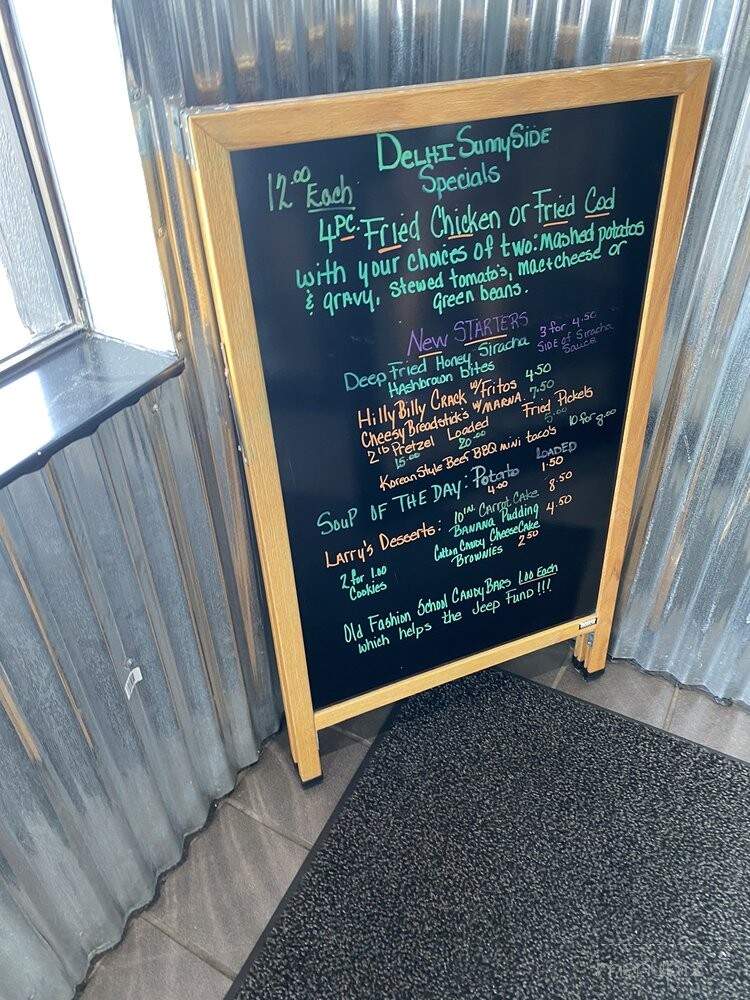 DELHI SunnySiDE
Specials
12.00 Each
4PC. Fried Chicken or Fried Cod
with your choices of two: Mashed potatos
& gravy, stewed tomato's, mac+cheese or
green beans.
New STARTERS
Deep Fried Honey Siracha 3 for 4.50
HAshbrown bites SIDE of Siracha
Sauce
HillyBilly CRACK w/Fritos 4.50
Cheesy Breadstick's w/MARNA. 7.50
2 lb Pretzel Loaded Fried Pickels
15.00 20.00 5.00
Korean Style Beef BBQ mini taco's 10 for 8.00
SouP OF THE DAY: Potato LOADED
4.00 1.50
LARRy's Desserts: 10 in. Carrot Cake 8.50
BANANA Pudding 4.50
2 for 1.00 Cotton Candy CheeseCake
Cookies BROWNIES 2.50
Old Fashion School CANDy BARS 1.00 Each
which helps the Jeep Fund!!!